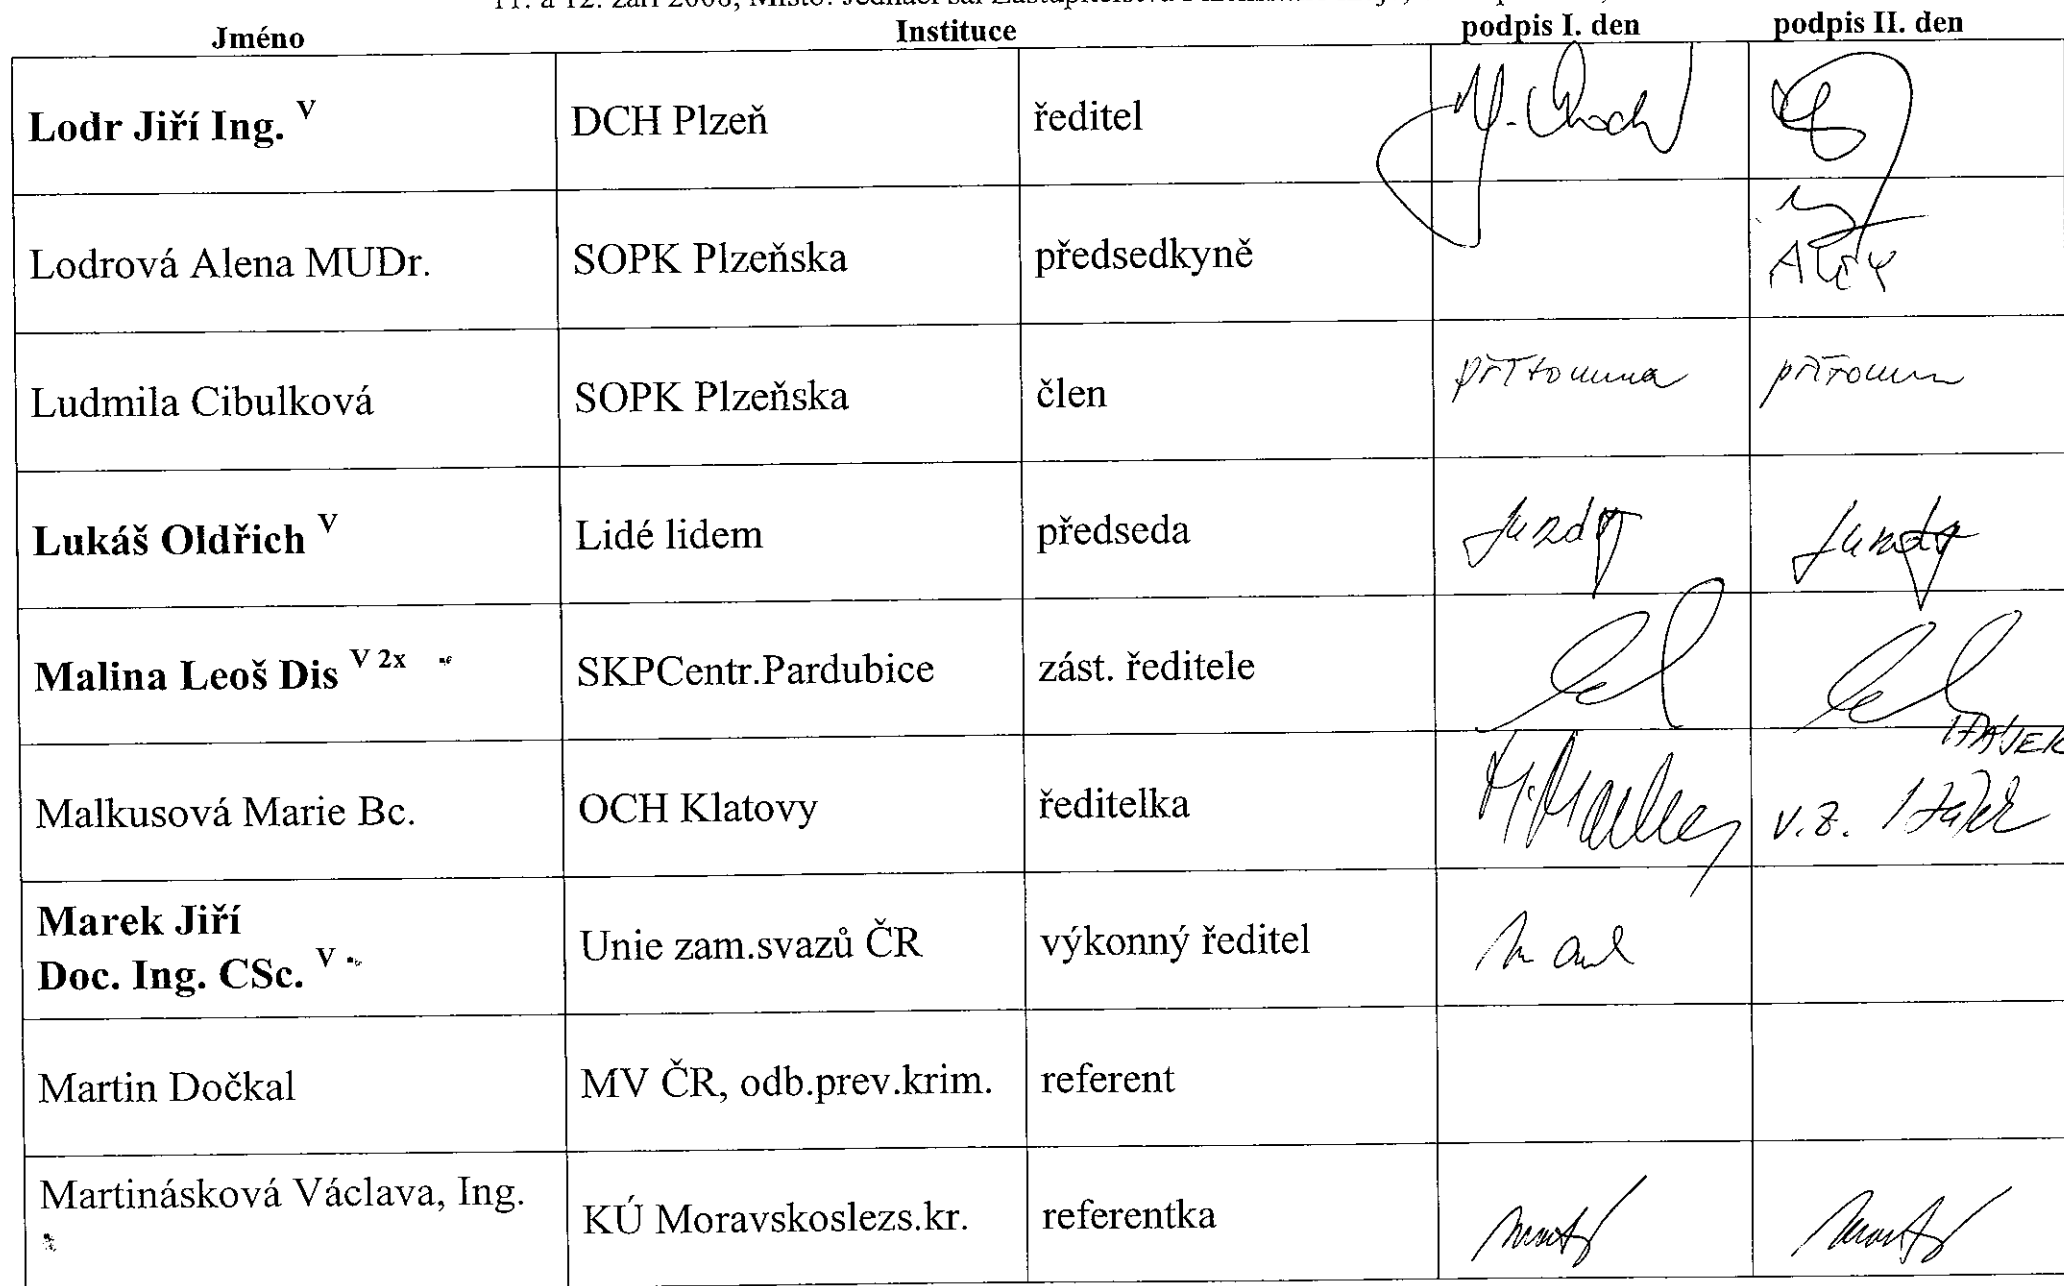 11. a 12. září 2008, Místo: Jednací sál Zastupitelstva
Jméno Instituce podpis I. den podpis II. den
Lodr Jiří Ing. V DCH Plzeň ředitel
Lodrová Alena MUDr. SOPK Plzeňska předsedkyně
Ludmila Cibulková SOPK Plzeňska člen přítomna přítomna
Lukáš Oldřich V Lidé lidem předseda
Malina Leoš Dis V 2x SKPCentr.Pardubice zást. ředitele
HÁJEK
Malkusová Marie Bc. OCH Klatovy ředitelka v.z. Hájek
Marek Jiří
Doc. Ing. CSc. V Unie zam.svazů ČR výkonný ředitel
Martin Dočkal MV ČR, odb.prev.krim. referent
Martinásková Václava, Ing. KÚ Moravskoslezs.kr. referentka